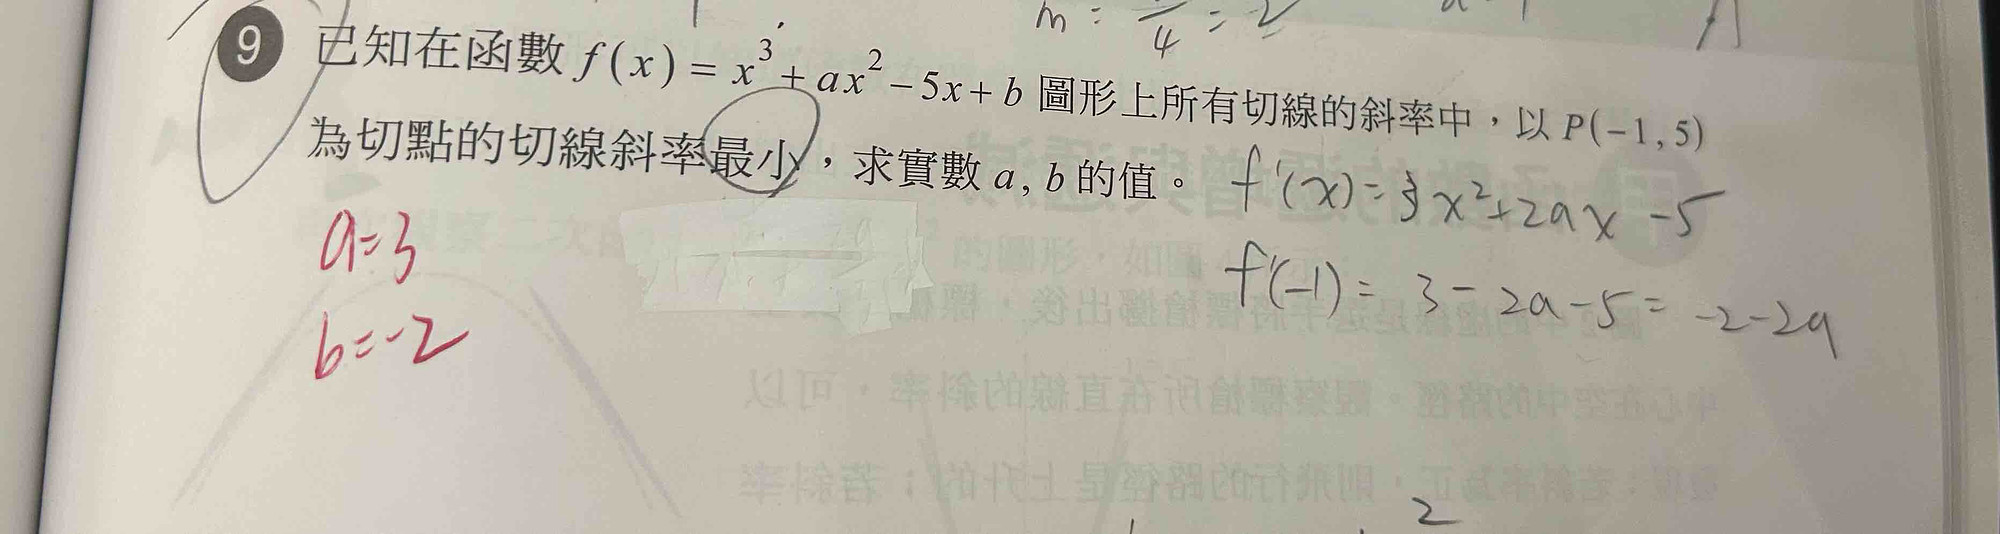 m = — 4 = -2
9 已知在函數 f(x) = x³ + ax² − 5x + b 圖形上所有切線的斜率中，以 P(−1, 5)
為切點的切線斜率最小，求實數 a, b 的值。
f'(x) = 3x² + 2ax − 5
a=3
f'(-1) = 3 - 2a - 5 = -2 - 2a
b=-2
2